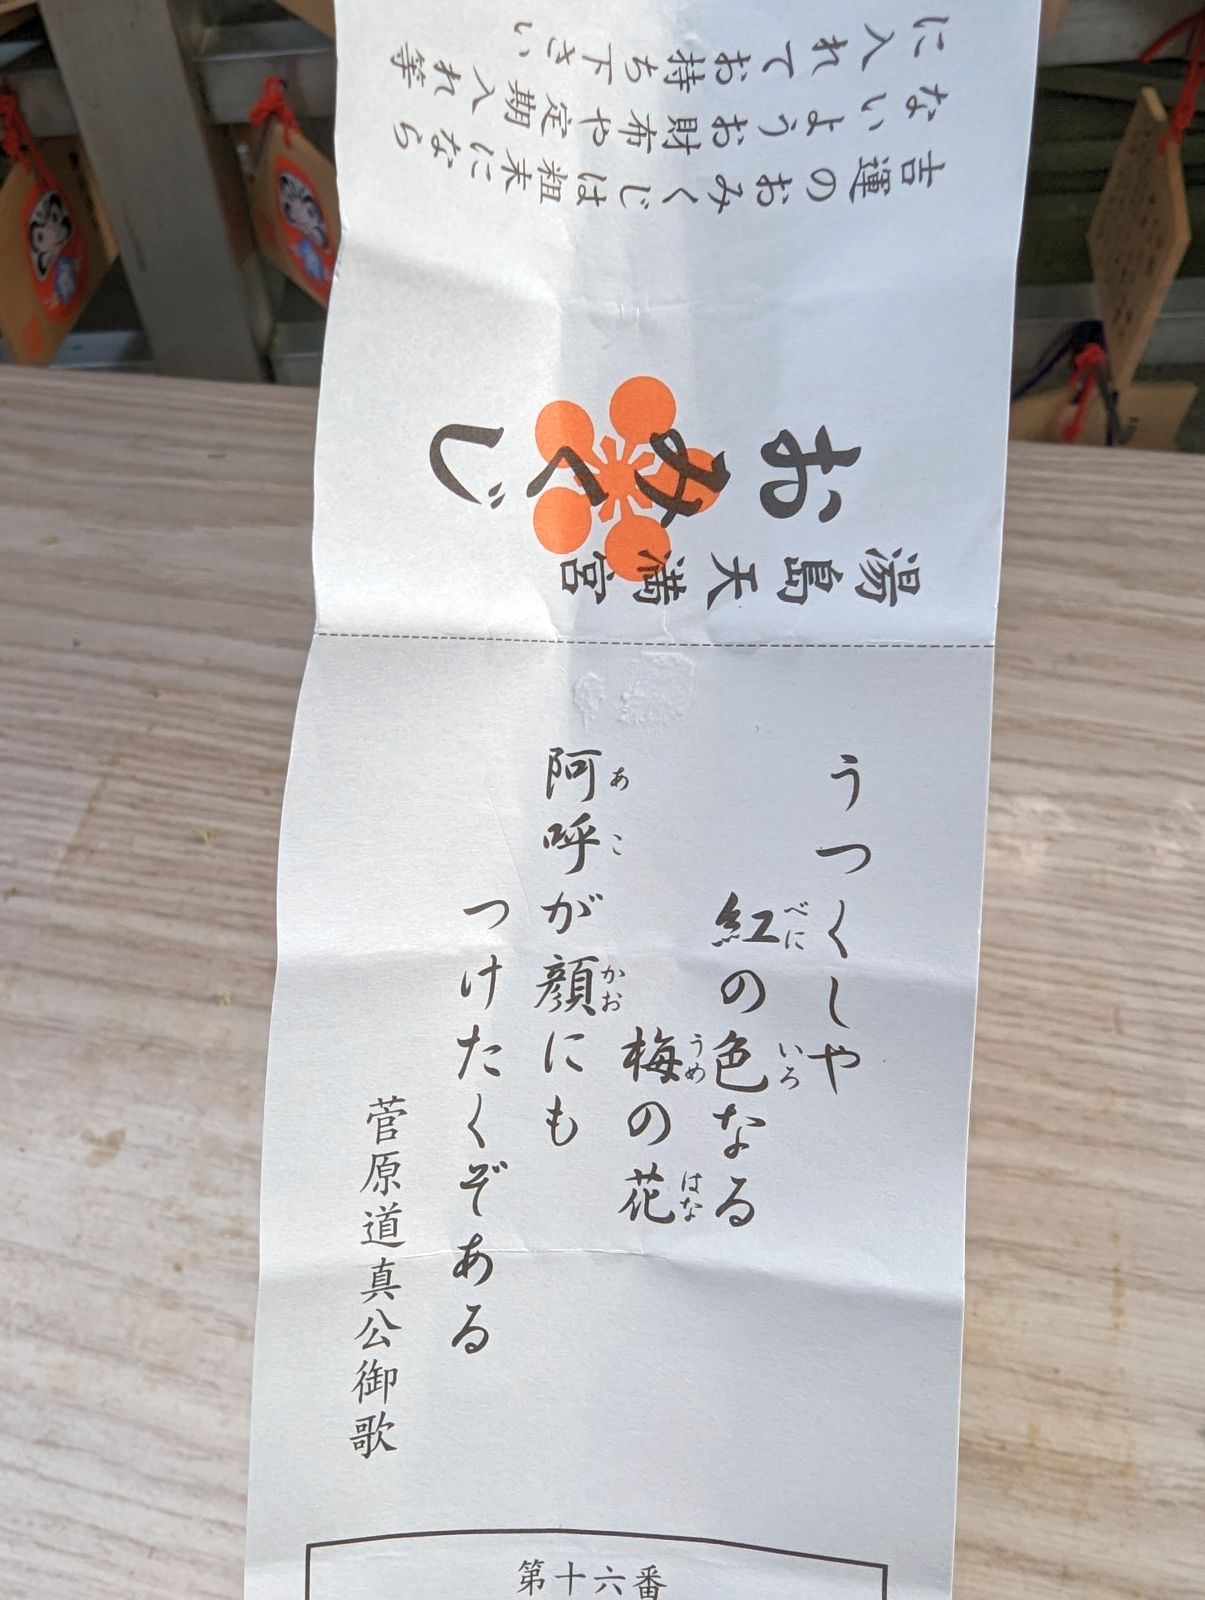 吉運のおみくじは粗末になら
ないようお財布や定期入れ等
に入れてお持ち下さい
おみくじ
湯島天満宮
うつくしや
紅の色なる
べに
いろ
梅の花
うめ
はな
阿呼が顔にも
あこ
かお
つけたくぞある
菅原道真公御歌
第十六番